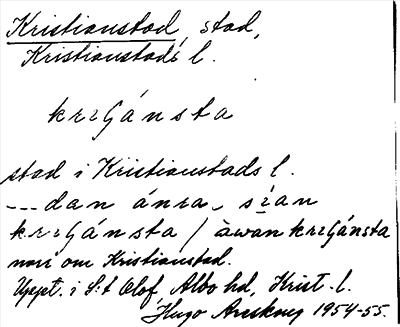 Kristianstad, stad,
Kristianstads l.
krɪʃánsta
stad i Kristianstads l.
---dan ánra, sɪan
krɪʃánsta / àwan krɪʃánsta
norr om Kristianstad.
Uppt. i S:t Olof, Albo hd, Krist. l.
Hugo Areskoug 1954-55.